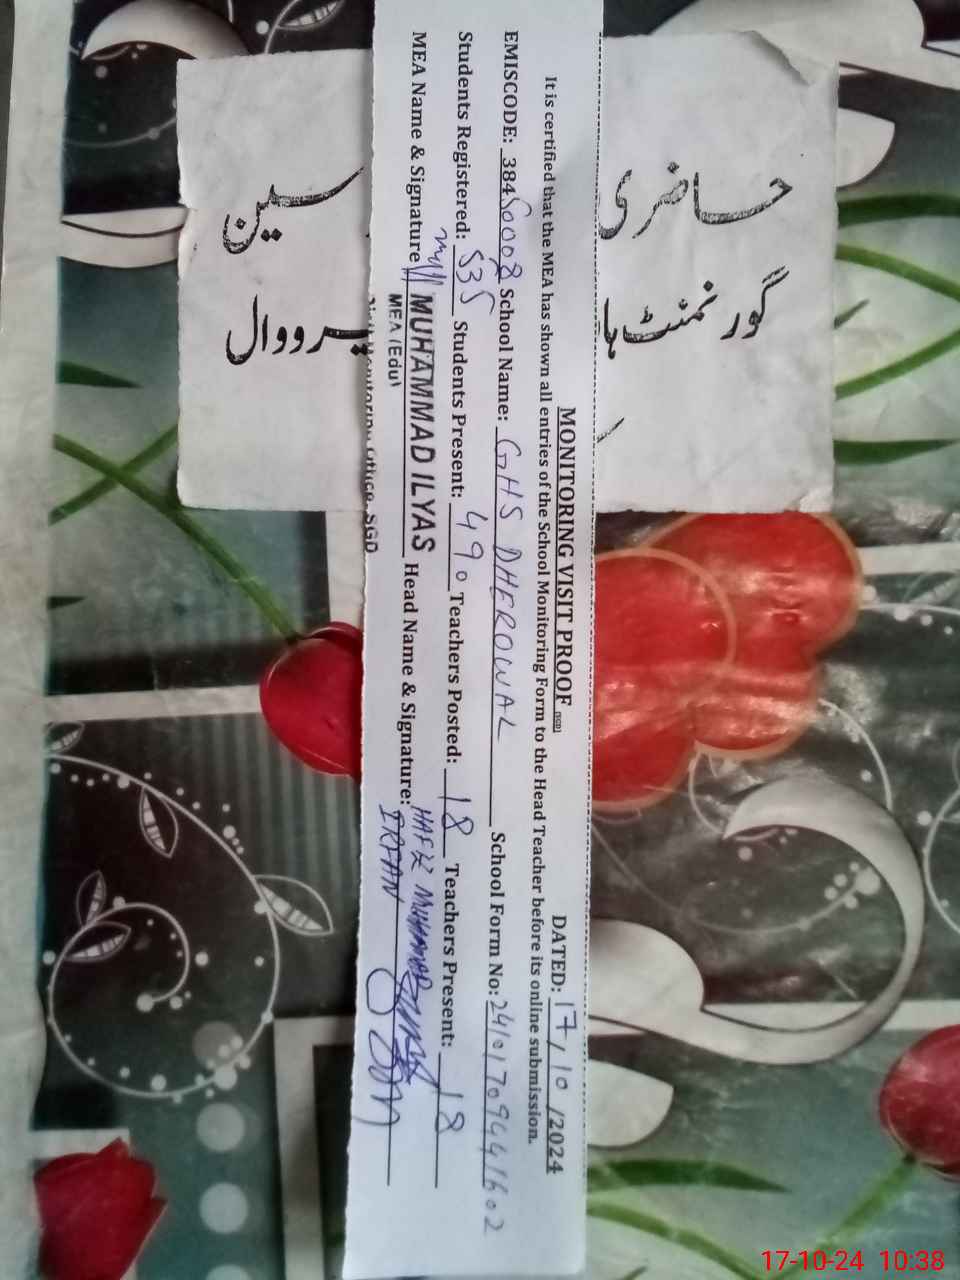 حاضری
سین
گورنمنٹ ہا
یرووال
MONITORING VISIT PROOF
DATED: 17/10/2024
It is certified that the MEA has shown all entries of the School Monitoring Form to the Head Teacher before its online submission.
EMISCODE: 38450008 School Name: GHS DHEROWAL School Form No: 24101709441602
Students Registered: 535 Students Present: 490 Teachers Posted: 18 Teachers Present: 18
MEA Name & Signature MUHAMMAD ILYAS Head Name & Signature: HAFIZ MUHAMMAD
IRFAN
MEA (Edu)
Monitoring Office, SGD
17-10-24 10:38